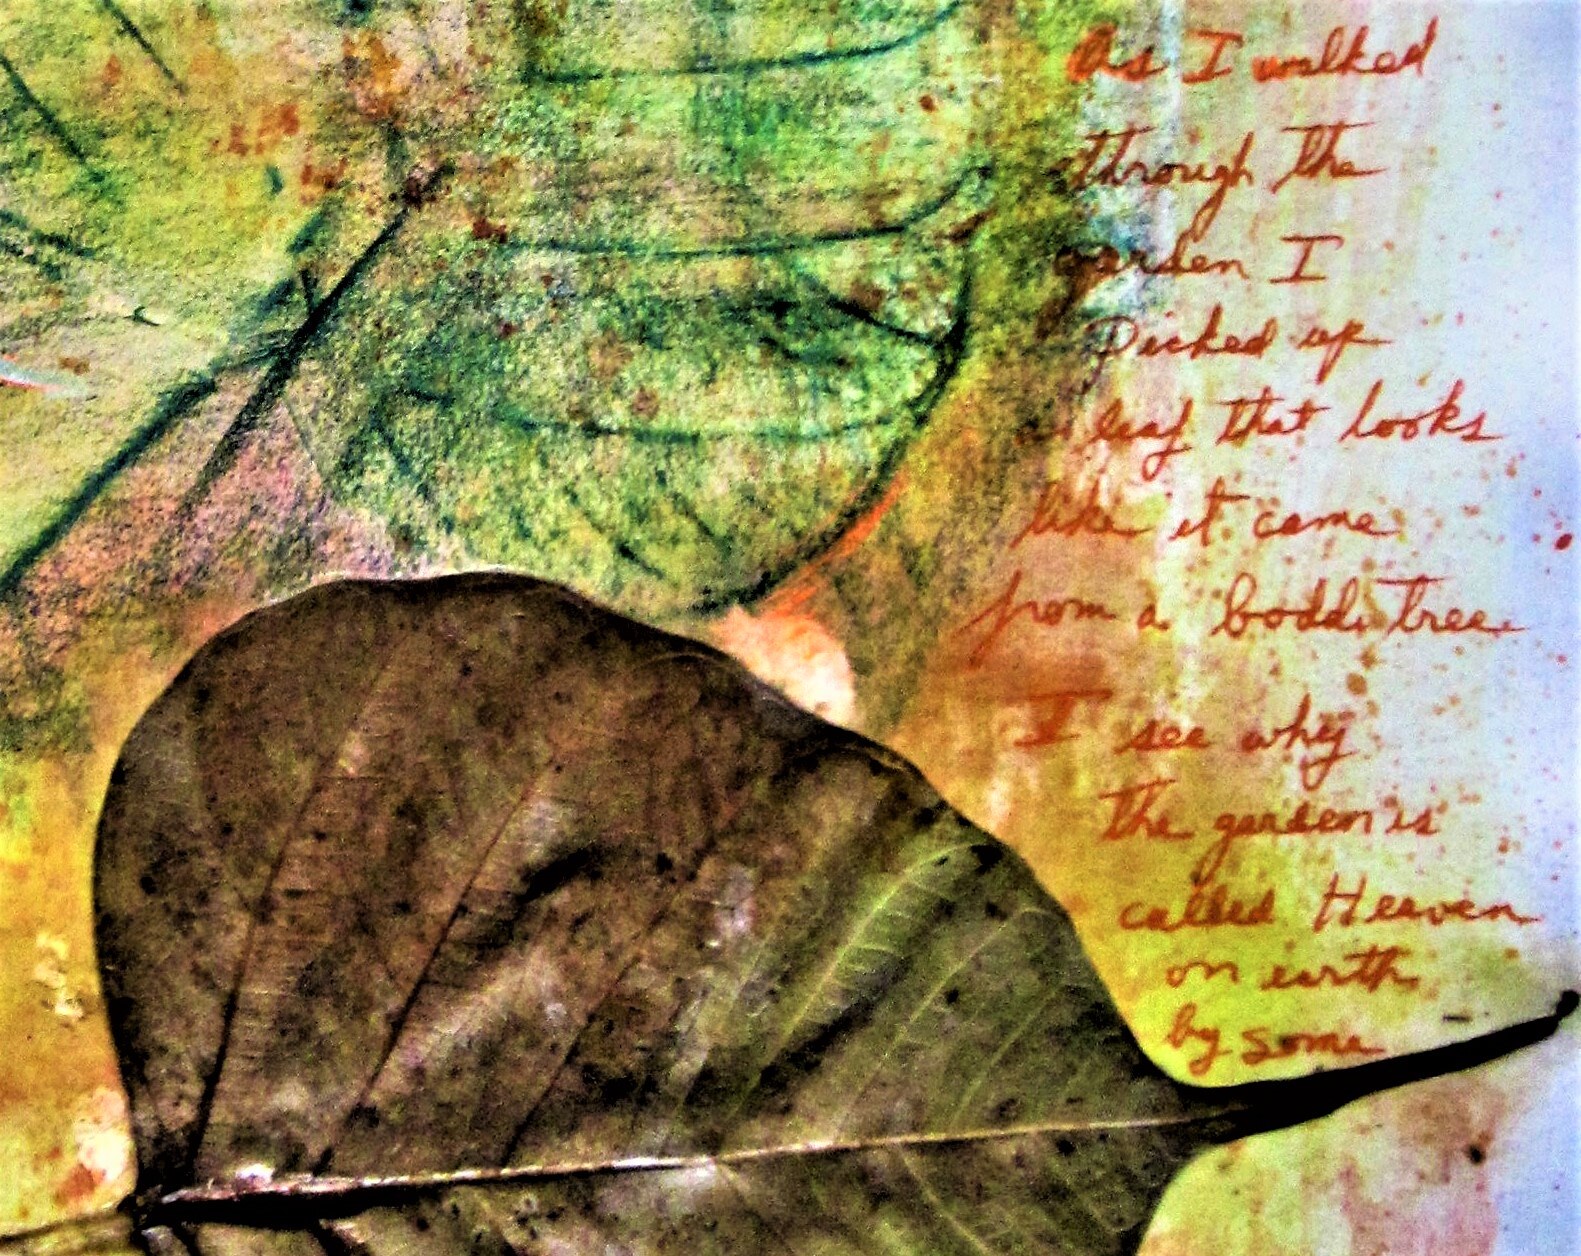 As I walked
through the
garden I
Picked up
leaf that looks
like it came
from a boddi tree
I see why
the garden is
called Heaven
on earth
by some